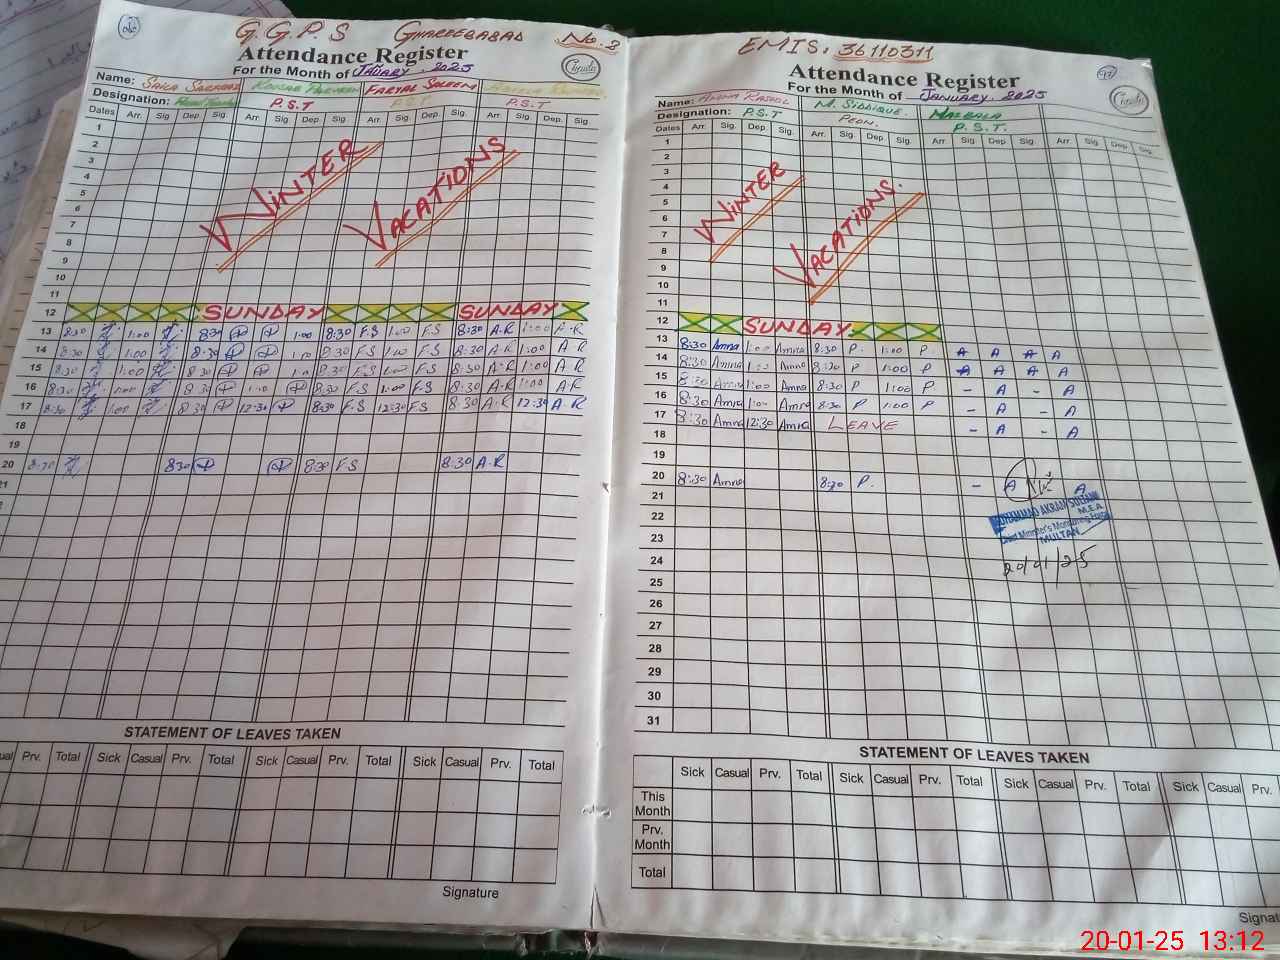 G.G.P.S GHAREEBABAD No. 2
Attendance Register
For the Month of JANUARY. 2025
Name: SAIRA SARFRAZ KOUSAR PARVEEN FARYAL SALEEM
Designation: Head Teacher P.S.T P.S.T P.S.T
Dates Arr. Sig. Dep. Sig. Arr. Sig. Dep. Sig. Arr. Sig. Dep. Sig. Arr. Sig. Dep. Sig.
1
2
3
4
5
6
7
8
9
10
11
WINTER VACATIONS
12 SUNDAY SUNDAY
13 8:30 1:00 8:30 1:00 8:30 F.S 1:00 F.S 8:30 A.R 1:00 A.R
14 8:30 1:00 8:30 1:00 8:30 F.S 1:00 F.S 8:30 A.R 1:00 A.R
15 8:30 1:00 8:30 1:00 8:30 F.S 1:00 F.S 8:30 A.R 1:00 A.R
16 8:30 1:00 8:30 1:00 8:30 F.S 1:00 F.S 8:30 A.R 1:00 A.R
17 8:30 1:00 8:30 12:30 8:30 F.S 12:30 F.S 8:30 A.R 12:30 A.R
18
19
20 8:30 8:30 8:30 F.S 8:30 A.R
21
STATEMENT OF LEAVES TAKEN
Prv. Total Sick Casual Prv. Total Sick Casual Prv. Total Sick Casual Prv. Total
Signature
EMIS: 36110311
Attendance Register
For the Month of JANUARY. 2025
Name: AMNA RASOOL M. SIDDIQUE. MAZBALA
Designation: P.S.T PEON. P.S.T.
Dates Arr. Sig. Dep. Sig. Arr. Sig. Dep. Sig. Arr. Sig. Dep. Sig. Arr. Sig. Dep. Sig.
1
2
3
4
5
6
7
8
9
10
11
WINTER VACATIONS.
12 SUNDAY.
13 8:30 Amna 1:00 Amna 8:30 P. 1:00 P. A A A A
14 8:30 Amna 1:00 Amna 8:30 P 1:00 P A A A A
15 8:30 Amna 1:00 Amna 8:30 P 1:00 P - A - A
16 8:30 Amna 1:00 Amna 8:30 P 1:00 P - A - A
17 8:30 Amna 12:30 Amna LEAVE - A - A
18
19
20 8:30 Amna 8:30 P. - A A
21
22
23
24
25
26
27
28
29
30
31
MUHAMMAD AKRAM SULTANI
M.E.A
Chief Minister's Monitoring Force
MULTAN
20/01/25
STATEMENT OF LEAVES TAKEN
Sick Casual Prv. Total Sick Casual Prv. Total Sick Casual Prv. Total Sick Casual Prv.
This Month
Prv. Month
Total
Signat
20-01-25 13:12